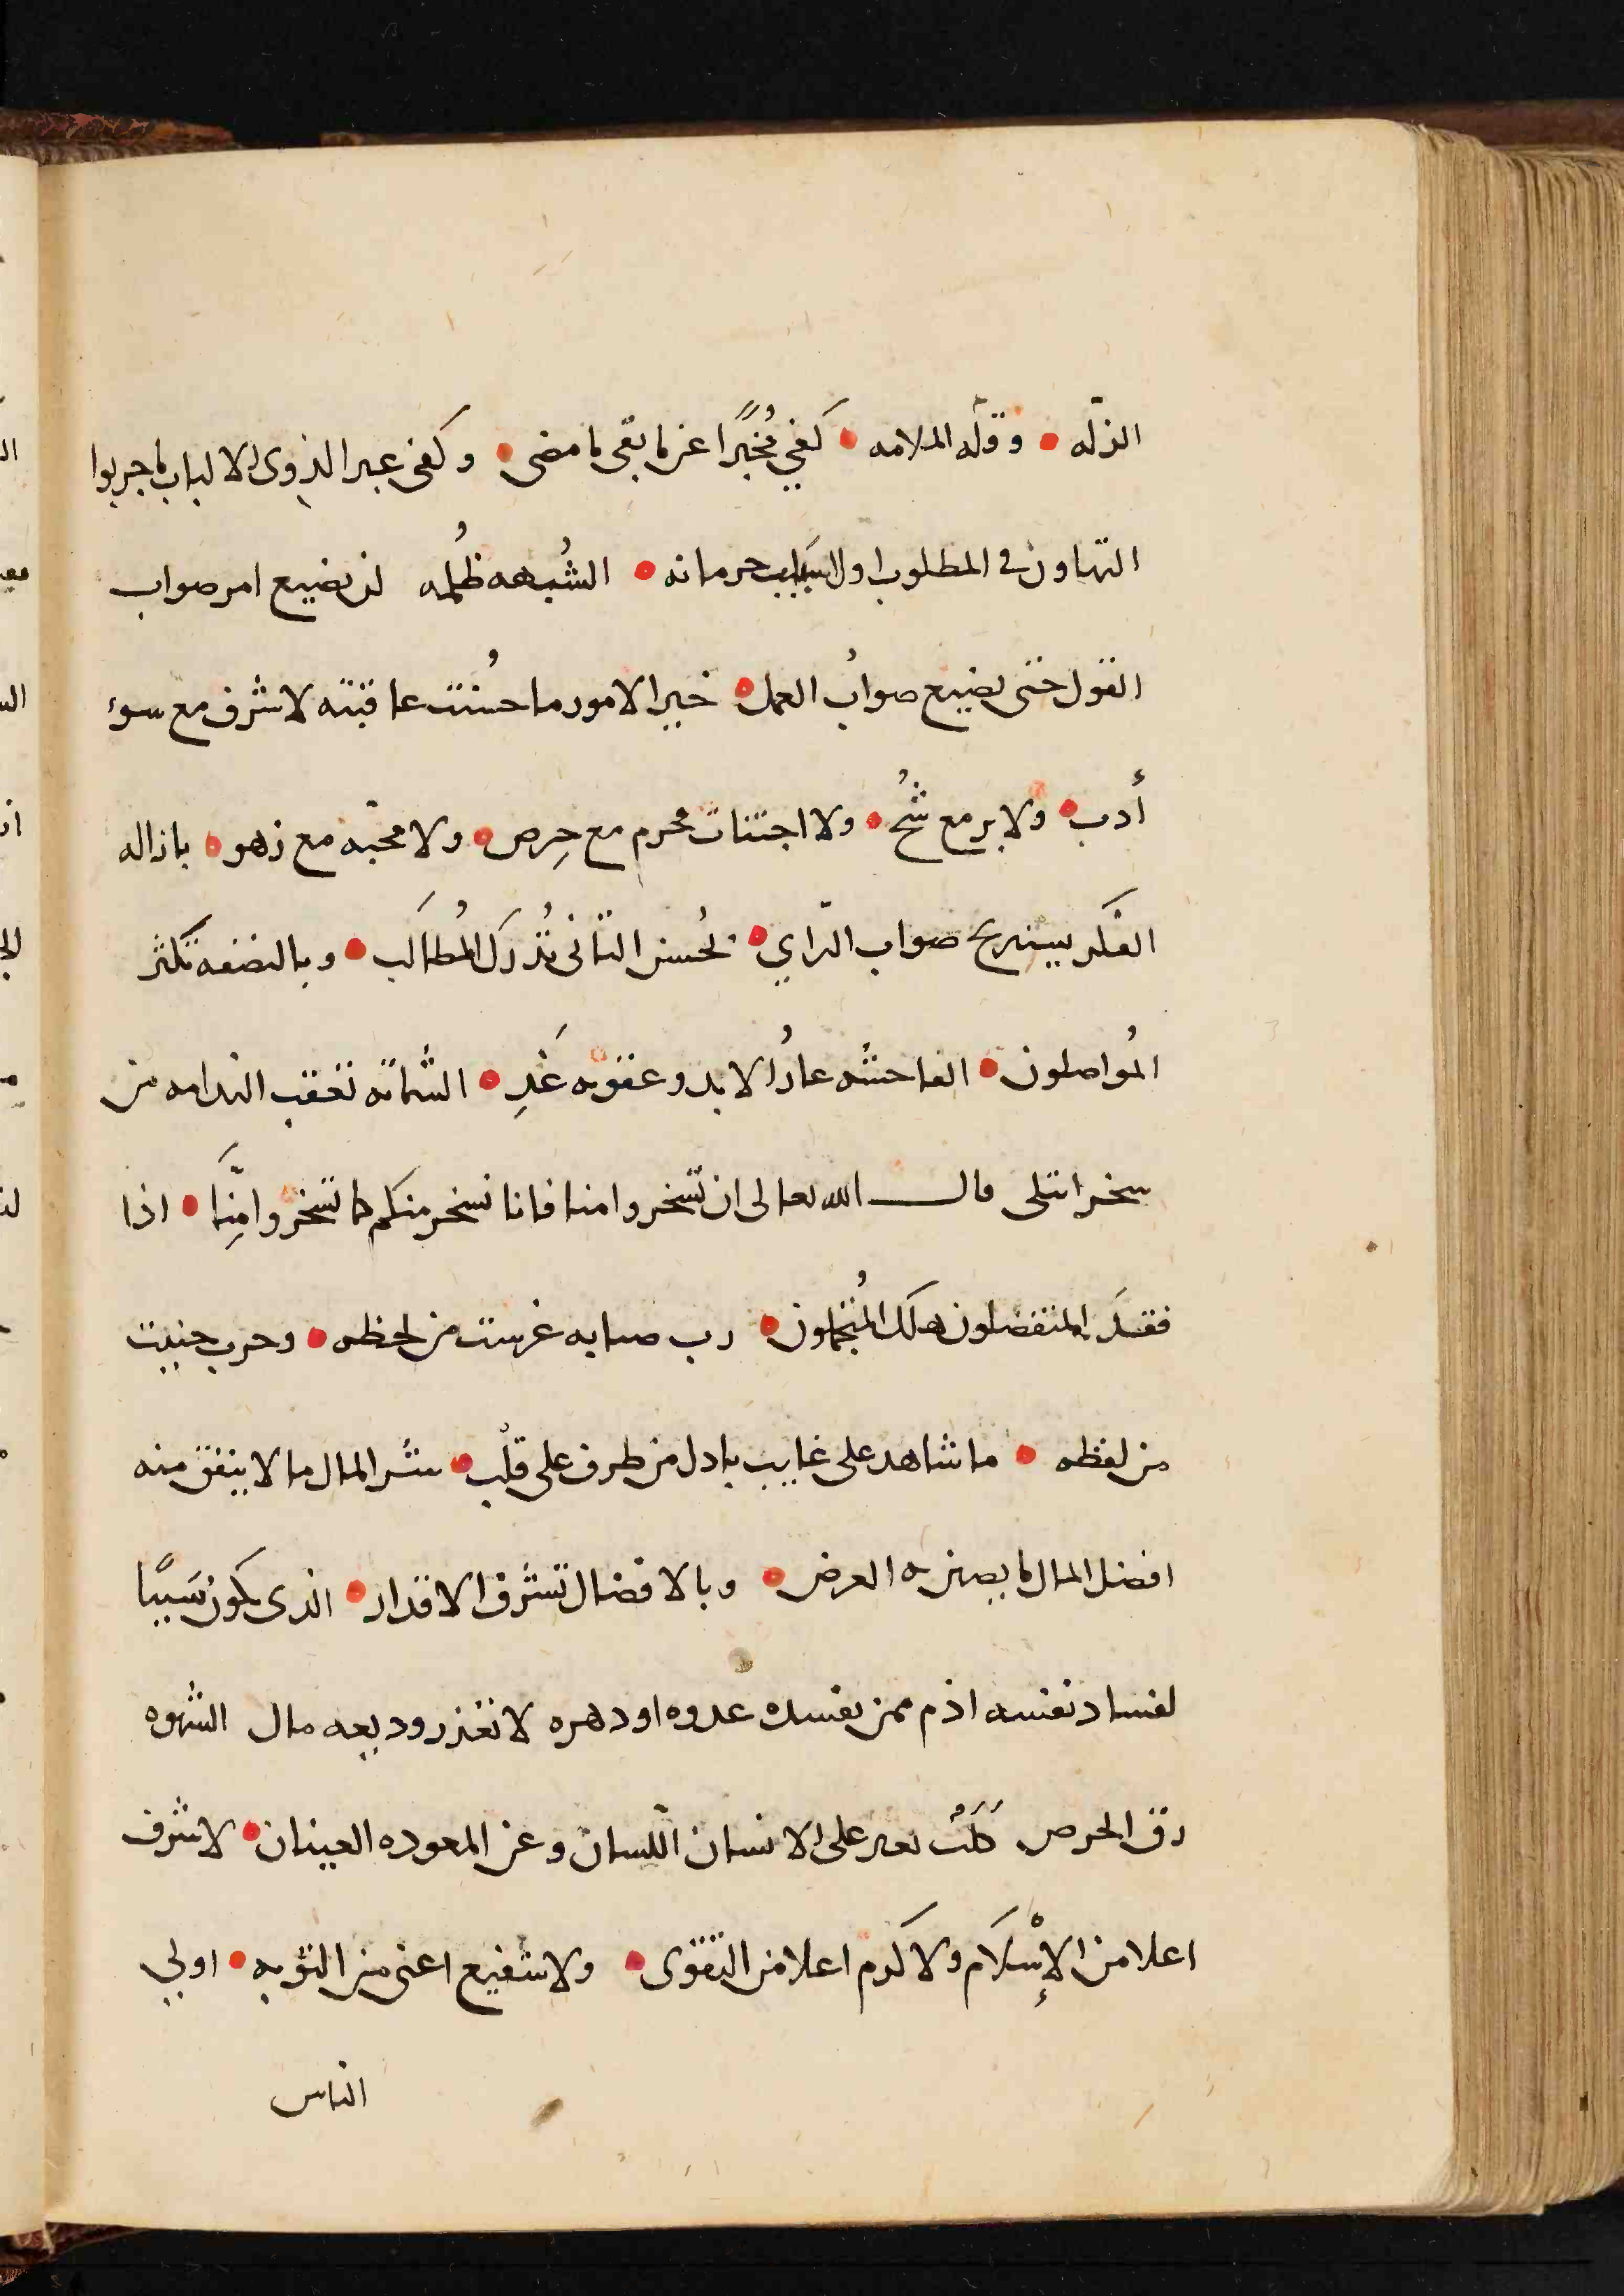 الزلّه • وقلّه الملامه • كفي مُخبرًا عن ما بقى ما مضى • وكفى عبرا لذوى الالباب ما جربوا
التهاون فى المطلوب اول اسباب حرمانه • الشُبهه ظُلمه لن يضيع امر صواب
القول حتى يضيع صوابُ العمل • خير الامور ما حسُنت عاقبته لا شرف مع سوء
أدب • ولا بر مع شُح • ولا اجتناب محرم مع حِرص • ولا محبّه مع زهو • باذاله
الفكر يستريح صواب الرّاي • بحُسن التانى تُدرَك المُطالَب • وبالنصفه تكثر
المُواصلون • الفاحشه عارُ الابد وعقوبه غَدِ • الشماته تعقب الندامه من
سخر ابتلى قال الله تعالى ان تسخروا منا فانا نسخر منكم كما تسخروا مِنَّا • اذا
فقدَ المتفضلون هلك المُتجملون • رب صبابه غرست من لحظه • وحرب جنيت
من لفظه • ما شاهد على غايب بادل من طرف على قلب • شر المال ما لا ينفق منه
افضل المال ما يصن به العرض • وبالافضال تشرف الاقدار • الذى يكون سَببًا
لفساد نفسه اذم ممن يفسده عدوه او دهره لا تغذر وديعه مال الشهوه
رق الحرص على الانسان اللّسان وعن الموده العينان • لا شرف
اعلا من الإسْلَام ولا كرم اعلا من التقوى • ولا شفيع اعنى من التوبه • اولي
الناس